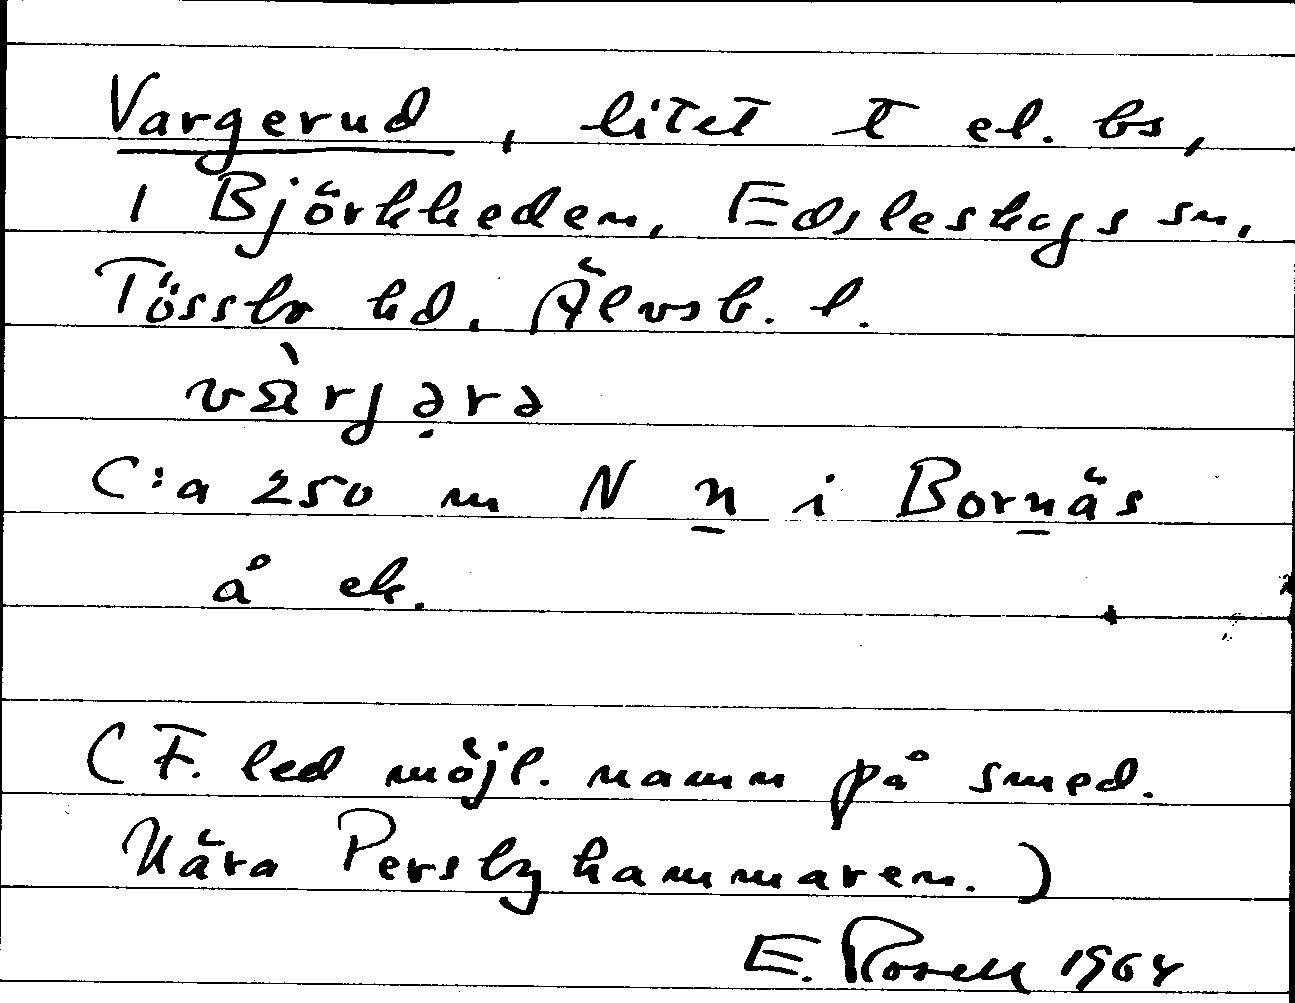 Vargerud, litet t el. bs,
i Björkheden, Edsleskogs sn,
Tössbo hd. Älvsb. l.
C:a 250 m N n i Bornäs
å ek.
(F. led möjl. namn på smed.
Nära Persbyhammaren.)
E. Rosell 1964